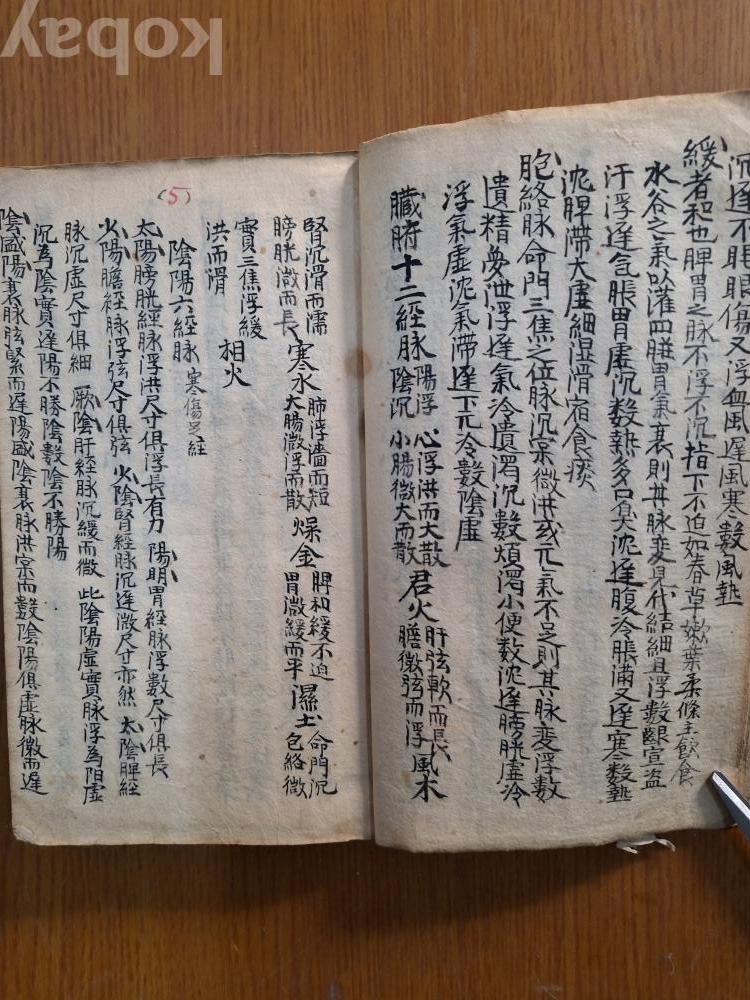 沉遲不眠眼傷又浮血風遲風寒數風熱
緩者和也脾胃之脉不浮不沉指下不迫如春草嫩葉柔條主飮食
水谷之氣以灌四胃氣衰則其脉變見代結細且浮數齦宣盗
汗浮遲氣脹胃虛沉數熱多口臭沈遲腹冷脹滿又遲寒數熱
沈脾滯大虛細湿滑宿食痰
胞絡脉命門三焦之位脉沉実微洪或元氣不足則其脉變浮數
遺精夢泄浮遲氣冷遺濁沉數煩濁小便數沈遲膀胱虛冷
浮氣虛沈氣滯遲下元冷數陰虛
臟腑十二經脉 陽浮 陰沉 心浮洪而大散 小腸微大而散 君火 肝弦軟而長 膽微弦而浮 風木
(5)
腎沉滑而濡 膀胱微而長 寒水 肺浮濇而短 大腸微浮而散 燥金 脾和緩不迫 胃微緩而平 濕土 命門沉 包絡微
實三焦浮緩
洪而滑 相火
陰陽六經脉 寒傷 經
太陽膀胱經脉浮洪尺寸俱浮長有力 陽明胃經脉浮數尺寸俱長
少陽膽經脉浮弦尺寸俱弦 少陰腎經脉沉遲微尺寸亦然 太陰脾經
脉沉虛尺寸俱細 厥陰肝經脉沉緩而微 此陰陽虛實脉浮為陽虛
沉為陰實遲陽不勝陰數陰不勝陽
陰盛陽衰脉弦緊而遲陽盛陰衰脉洪実而數陰陽俱虛脉微而遲
kobay